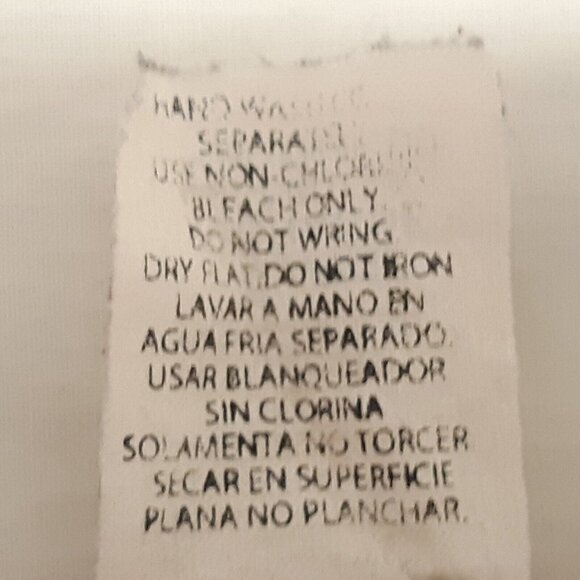 HAND WASH
SEPARATE
USE NON-CHLORINE
BLEACH ONLY.
DO NOT WRING
DRY FLAT.DO NOT IRON
LAVAR A MANO EN
AGUA FRIA SEPARADO.
USAR BLANQUEADOR
SIN CLORINA
SOLAMENTA NO TORCER
SECAR EN SUPERFICIE
PLANA NO PLANCHAR.